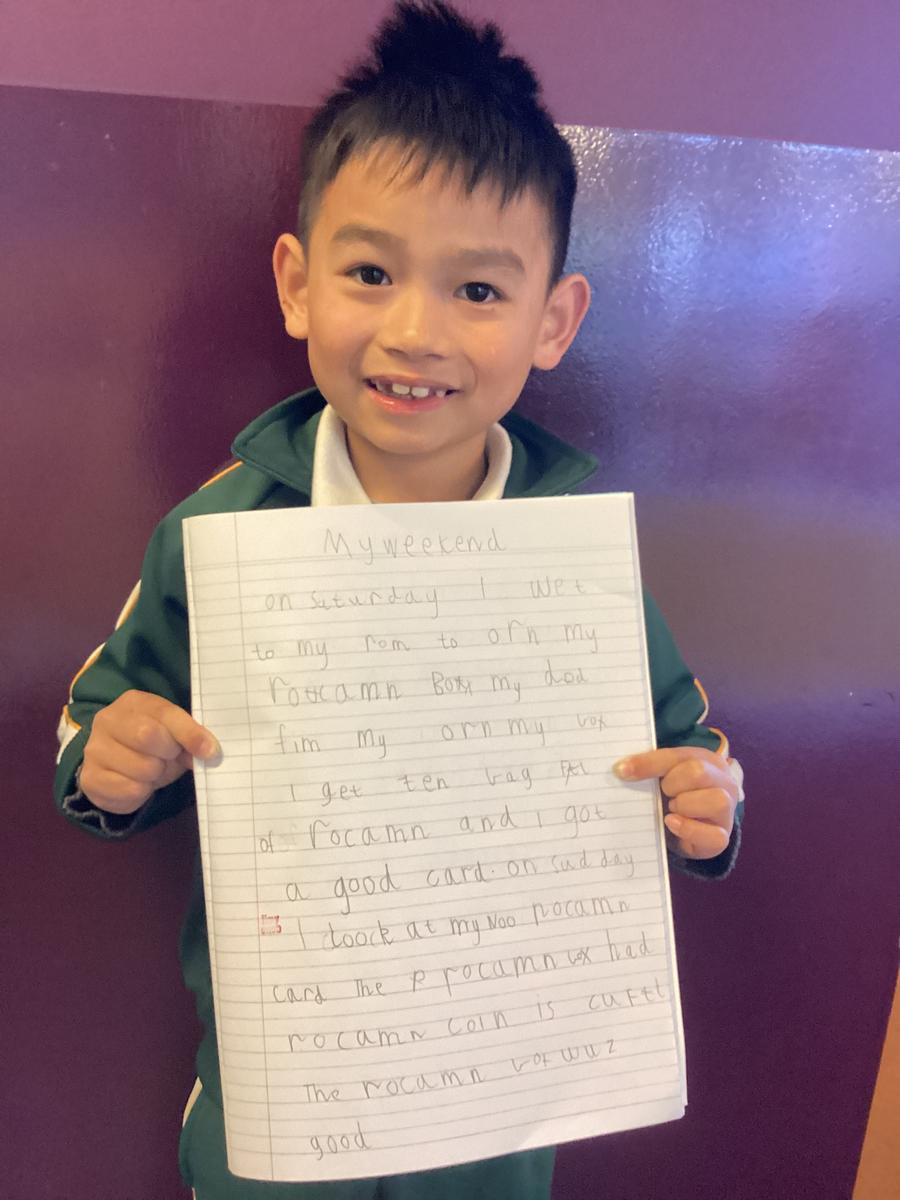 My weekend
on Saturday I wet
to my rom to orn my
rocamn Box my dod
fim my orn my vox
I get ten bag
of rocamn and i got
a good card. on sudday
I toock at my Noo rocamn
card The rocamn vox had
rocamn coin is
The rocamn vox wuz
good